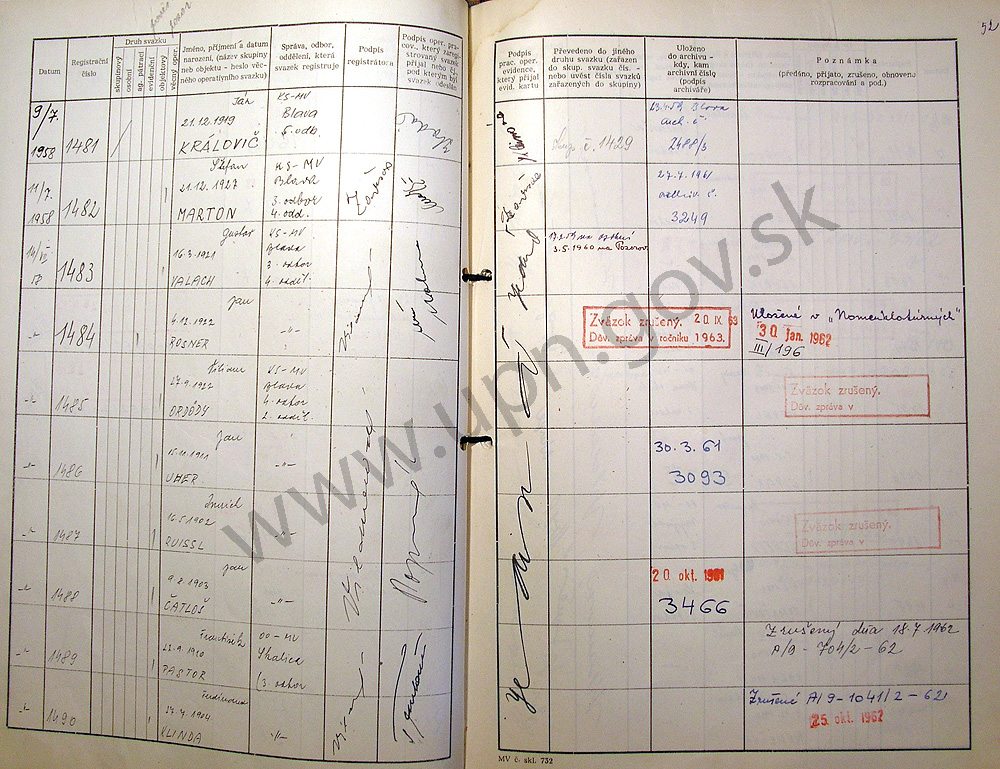 52
Datum
Registrační číslo
Druh svazku
skupinový
osobní
ag. pátrací
evidenční
objektový
věcný oper.
Jméno, příjmení a datum
narození, (název skupiny
neb objektu - heslo věc-
ného operativního svazku)
Správa, odbor,
oddělení, která
svazek registruje
Podpis
registrátora
Podpis oper. pra-
cov., který zaregi-
strovaný svazek
přijal nebo čj.,
pod kterým byl
svazek odeslán
Podpis
prac. oper.
evidence,
který přijal
evid. kartu
Převedeno do jiného
druhu svazku (zařazen
do skup. svazku čís. -
nebo uvést čísla svazků
zařazených do skupiny)
Uloženo
do archivu -
kdy, kam
archivní číslo
(podpis
archiváře)
Poznámka
(předáno, přijato, zrušeno, obnoveno
rozpracování a pod.)
9/7.
1958
1481
Ján
21.12.1919
KRÁLOVIČ
KS-MV
Blava
5. odb.
č. 1429
2488/3
11/7.
1958
1482
Štefan
21.12.1927
MARTON
KS-MV
Blava
3. odbor
4. odd.
27.7.1961
3249
14/VII
58
1483
Gustav
16.3.1921
VALACH
KS-MV
Blava
3. odbor
4. oddil.
3.5.1960 na Pozorov.
1484
Jan
4.12.1922
ROSNER
-"-
Zväzok zrušený. 20 IX 63
Dôv. zpráva v ročníku 1963.
Uložené v „Nomenklatúrnych"
30. jan. 1962
III/196
1485
Viliam
27.9.1922
ORDÓDY
KS-MV
Blava
4. odbor
2. oddil.
Zväzok zrušený.
Dôv. zpráva v
1486
Jan
15.11.1911
UHER
-"-
30.3.61
3093
1487
Imrich
16.5.1902
RUISSL
-"-
Zväzok zrušený.
Dôv. zpráva v
1488
Jan
9.8.1903
ČATLOŠ
-"-
20. okt. 1961
3466
1489
František
22.9.1910
PASTOR
OO-MV
Skalica
(3. odbor
Zrušený dňa 18.7.1962
A/9-704/2-62
1490
Ferdinand
27.4.1904
KLINDA
-"-
Zrušené A/9-1041/2-62
25. okt. 1962
MV č. skl. 752
www.upn.gov.sk